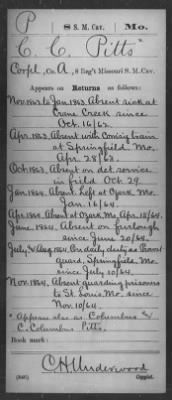 P 8 S. M. Cav. Mo.
C. C. Pitts
Corpl., Co. A, 8 Reg't Missouri S. M. Cav.
Appears on Returns as follows:
Nov. 1862 to Jan 1863. Absent sick at
Crane Creek since
Oct. 16/62.
Apr. 1863. Absent with Comsy train
at Springfield Mo.
Apr. 28/63.
Oct. 1863. Absent on det. service
in field Oct 29.
Jan. 1864. Absent. left at Ozark Mo.
Jan. 16/64.
Apr. 1864. Absent at Ozark Mo. Apr. 18/64.
June. 1864. Absent on furlough
since June 20/64.
July & Aug. 1864. On daily duty as Provost
guard, Springfield, Mo.
since July 10/64.
Nov. 1864. Absent guarding prisoners
to St. Louis Mo. since
Nov. 10/64.
* Appears also as Columbus &
C. Columbus Pitts.
Book mark:
C. H. Underwood
(546) Copyist.